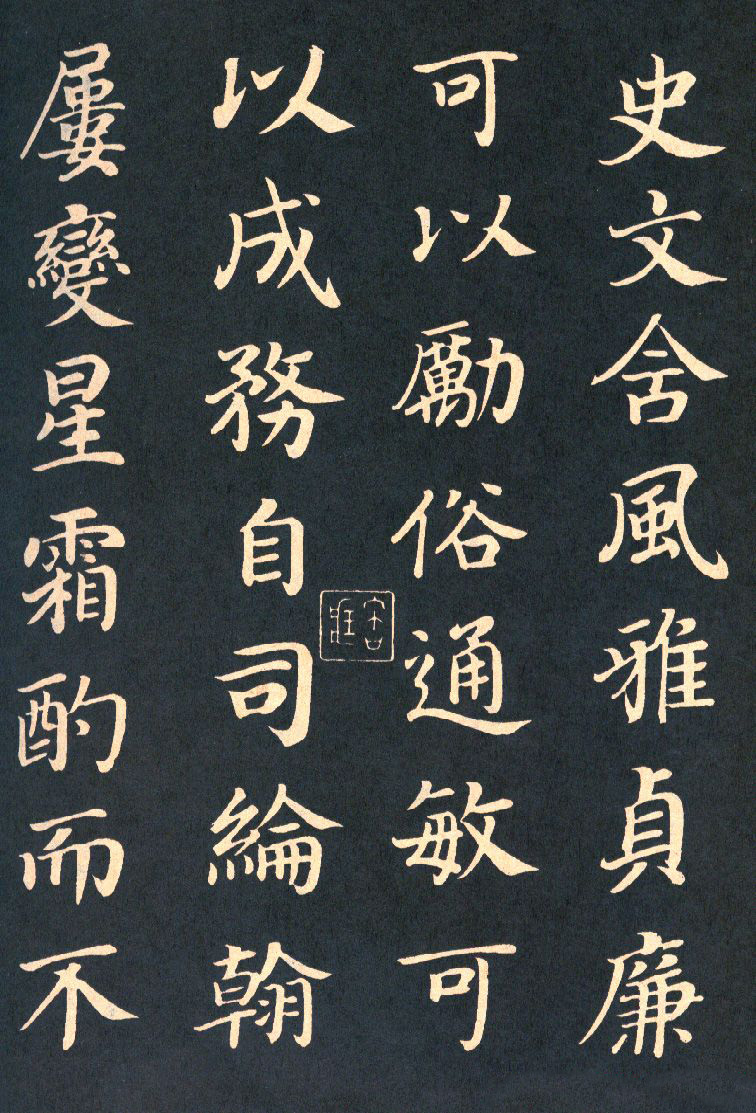 史文舍風雅貞廉
可以勵俗通敏可
以成務自司綸翰
屢變星霜酌而不